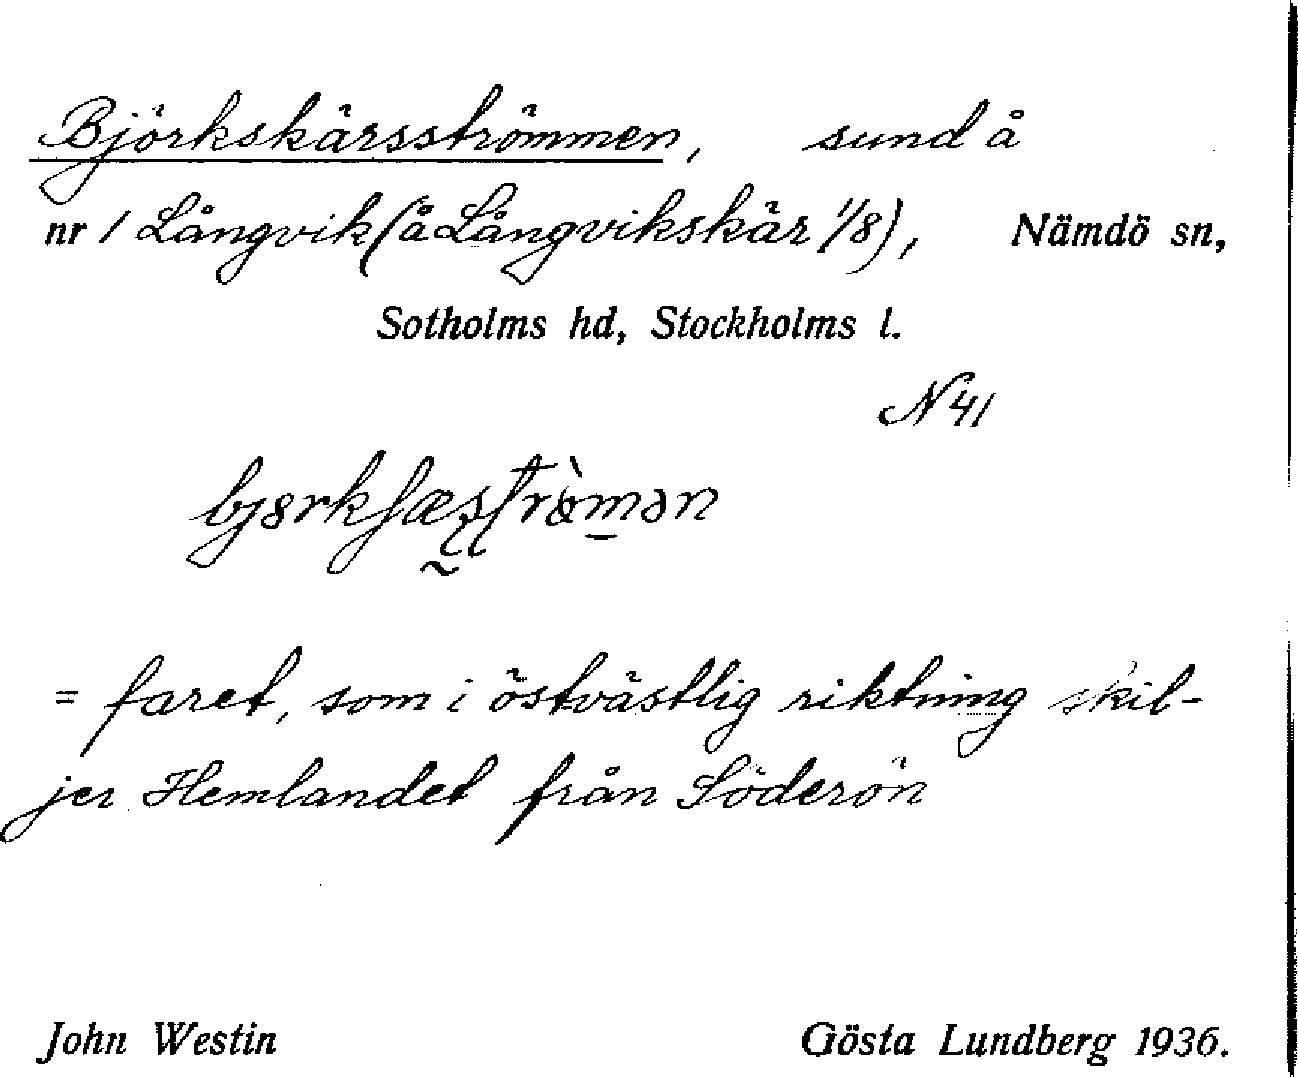 Björkskärsströmmen, sund å
nr 1 Långvik (å Långvikskär 1/8), Nämdö sn,
Sotholms hd, Stockholms l.
N 41
= faret, som i östvästlig riktning skil-
jer Hemlandet från Söderön
John Westin Gösta Lundberg 1936.